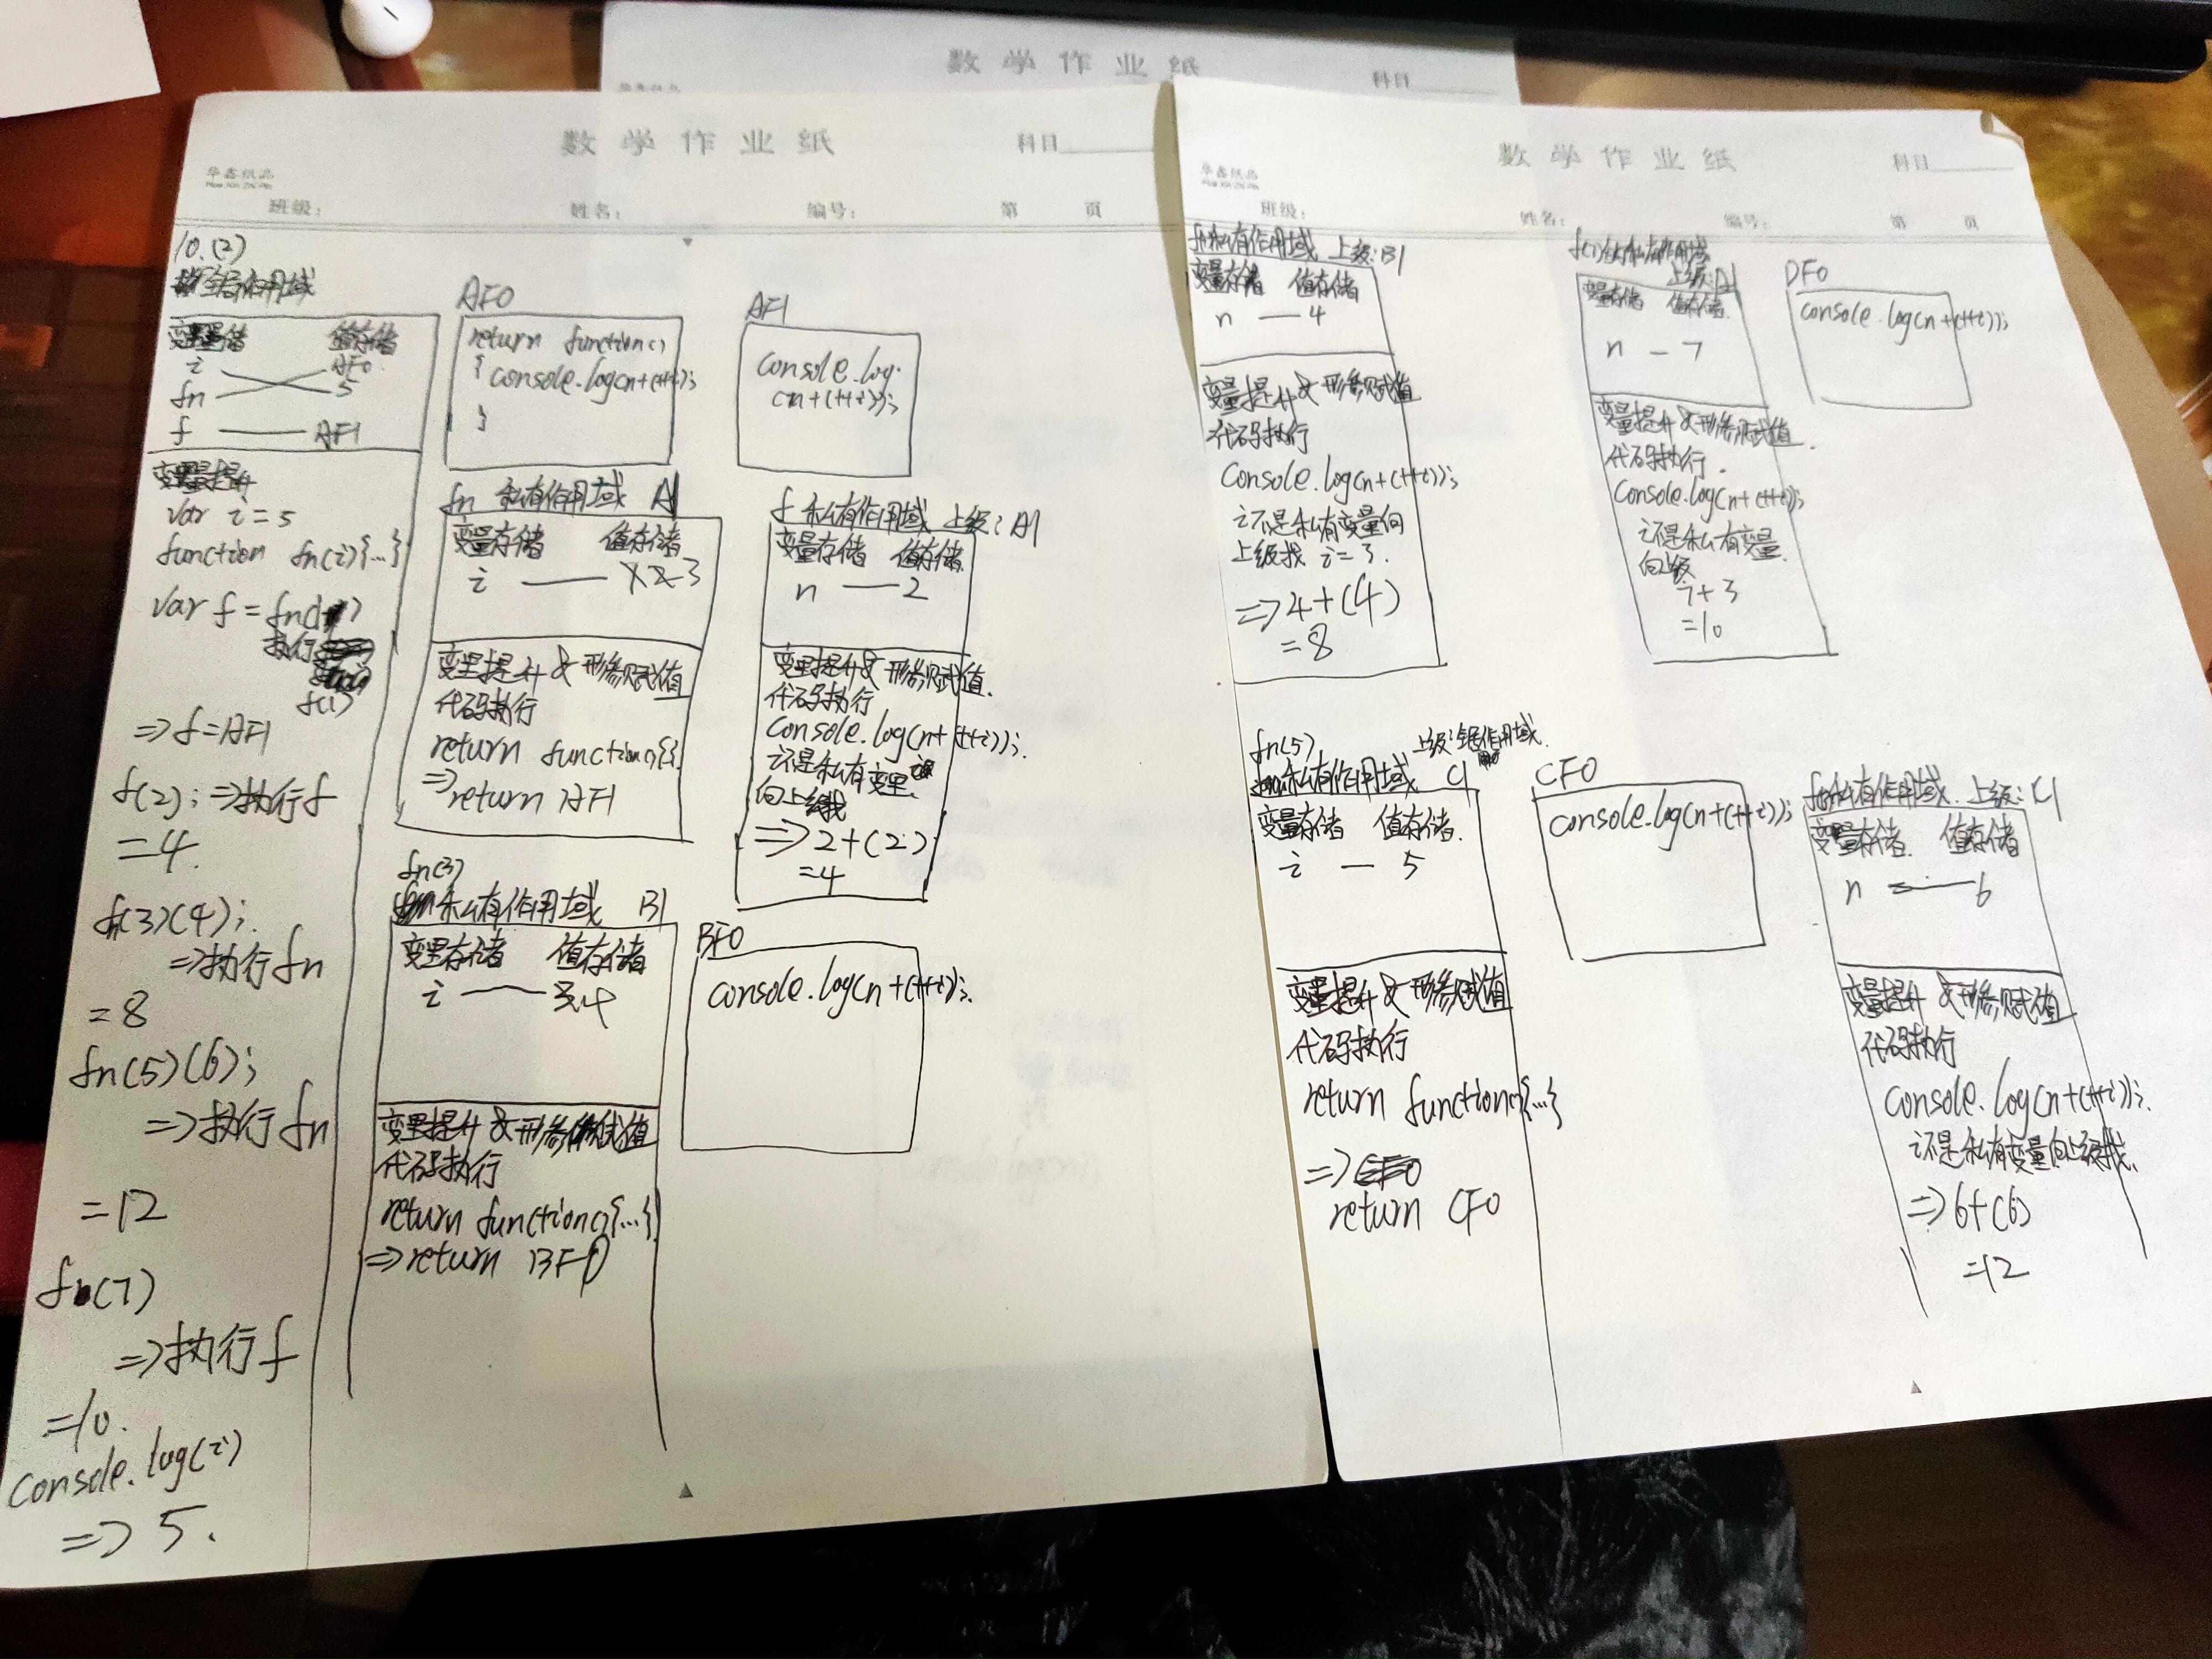 数学作业纸
科目
数学作业纸
科目
华鑫纸品
班级:
姓名:
编号:
第 页
10.(2)
全局作用域
变量存储 值存储
i AF0
fn 5
f AF1
变量提升
var i = 5
function fn(i){...}
var f = fn(1)
执行
f(1)
=> f = AF1
f(2); => 执行f
= 4.
fn(3)(4);
=> 执行fn
= 8
fn(5)(6);
=> 执行fn
= 12
f(7)
=> 执行f
= 10.
console.log(i)
=> 5.
AF0
return function()
{ console.log(n+(++i));
}
AF1
console.log
(n+(++i));
fn 私有作用域 A1
变量存储 值存储
i 1 2 3
变量提升 & 形参赋值
代码执行
return function(){}.
=> return AF1
f 私有作用域 上级: A1
变量存储 值存储
n 2
变量提升 & 形参赋值.
代码执行
console.log(n+(++i));
i不是私有变量
向上级找
=> 2+(2)
= 4
fn(3)
私有作用域 B1
变量存储 值存储
i 3.4
变量提升 & 形参赋值
代码执行
return function(){...}
=> return BF0
BF0
console.log(n+(++i));
数学作业纸
科目
华鑫纸品
班级:
姓名:
编号:
第 页
私有作用域 上级: B1
变量存储 值存储
n 4
变量提升 & 形参赋值
代码执行
console.log(n+(++i));
i不是私有变量向
上级找 i = 3.
=> 4+(4)
= 8
f(7)的私有作用域
上级: A1
变量存储 值存储
n 7
变量提升 & 形参赋值.
代码执行.
console.log(n+(++i));
i不是私有变量
向上级
7+3
= 10
DF0
console.log(n+(++i));
fn(5)
上级: 全局作用域.
私有作用域 C1
变量存储 值存储.
i 5
变量提升 & 形参赋值
代码执行
return function(){...}
=>
return CF0
CF0
console.log(n+(++i));
私有作用域. 上级: C1
变量存储. 值存储
n 6
变量提升 & 形参赋值
代码执行
console.log(n+(++i));
i不是私有变量向上级找.
=> 6+(6)
= 12